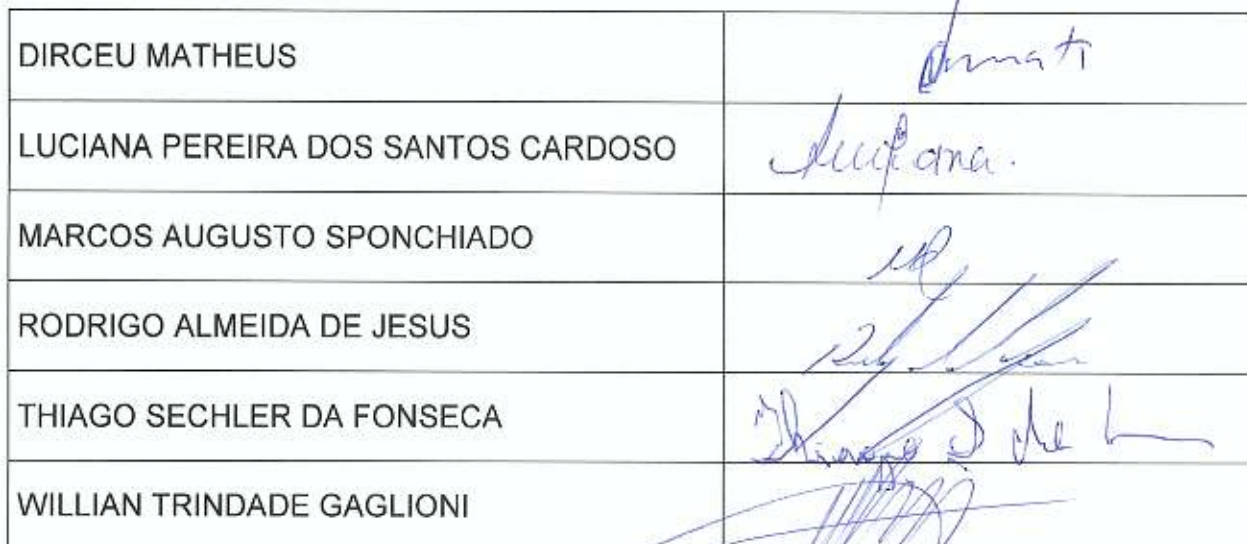 DIRCEU MATHEUS
LUCIANA PEREIRA DOS SANTOS CARDOSO
Luciana.
MARCOS AUGUSTO SPONCHIADO
RODRIGO ALMEIDA DE JESUS
THIAGO SECHLER DA FONSECA
WILLIAN TRINDADE GAGLIONI